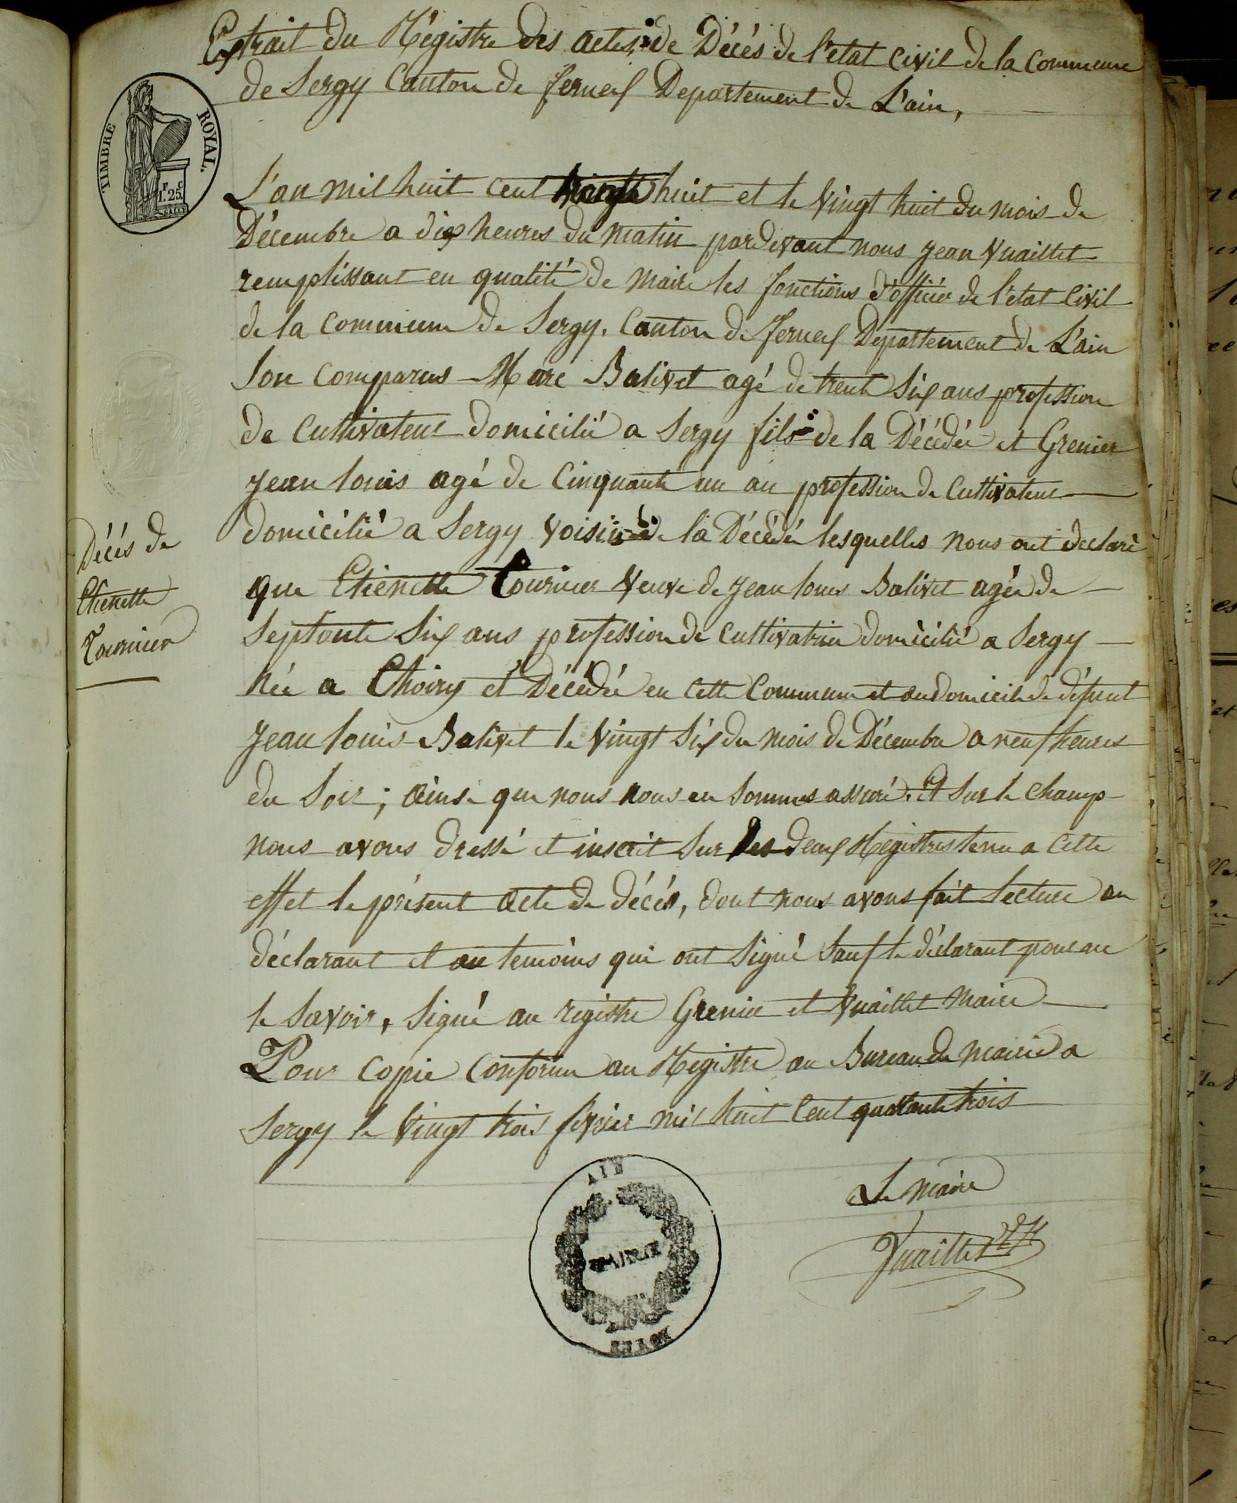 Extrait du Régistre des actes de Décés de l'etat Civil de la Commune
de Sergy Canton de ferney Departement de L'ain,
TIMBRE ROYAL.
1.F 25.C
L'an mil huit cent huit et le Vingt huit du mois de
Décembre a dix heures du matin pardevant nous jean Vuaillet
remplissant en qualité de maire les fonctions d'officier de l'état Civil
de la Commune de Sergy, Canton de ferney Departement de L'ain
Son Comparus Marc Balivet agé de trente Six ans profession
de Cultivateur domicilié a Sergy fils de la Décédée et Grenier
jean louis agé de Cinquante un an profession de Cultivateur
domicilié a Sergy Voisin de la Décédé lesquelles nous ont déclaré
que Etienette Tournier Veuve de jean louis Balivet agée de
Septante Six ans profession de Cultivatrice domicilié a Sergy
Née a Thoiry et Décédée en Cette Commune et au domicile de défunt
jean louis Balivet le Vingt Six du mois de Décembre a neuf heures
du Soir ; ainsi que nous nous en Sommes assuré. Et Sur le Champ
nous avons dressé et inscrit Sur les deux Régistres tenu a Cette
effet le présent acte de décés, dont nous avons fait lecture au
déclarant et au temoins qui ont Signé Sauf le déclarant pour ne
le Savoir, Signé au registre Grenier et Vuaillet maire
Pour Copie Conforme au Régistre au Bureau de mairie a
Sergy le Vingt trois fevrier mil huit Cent quarante trois
Le maire
Vuaillet
Décés de
Etienette
Tournier
AIN
MAIRIE